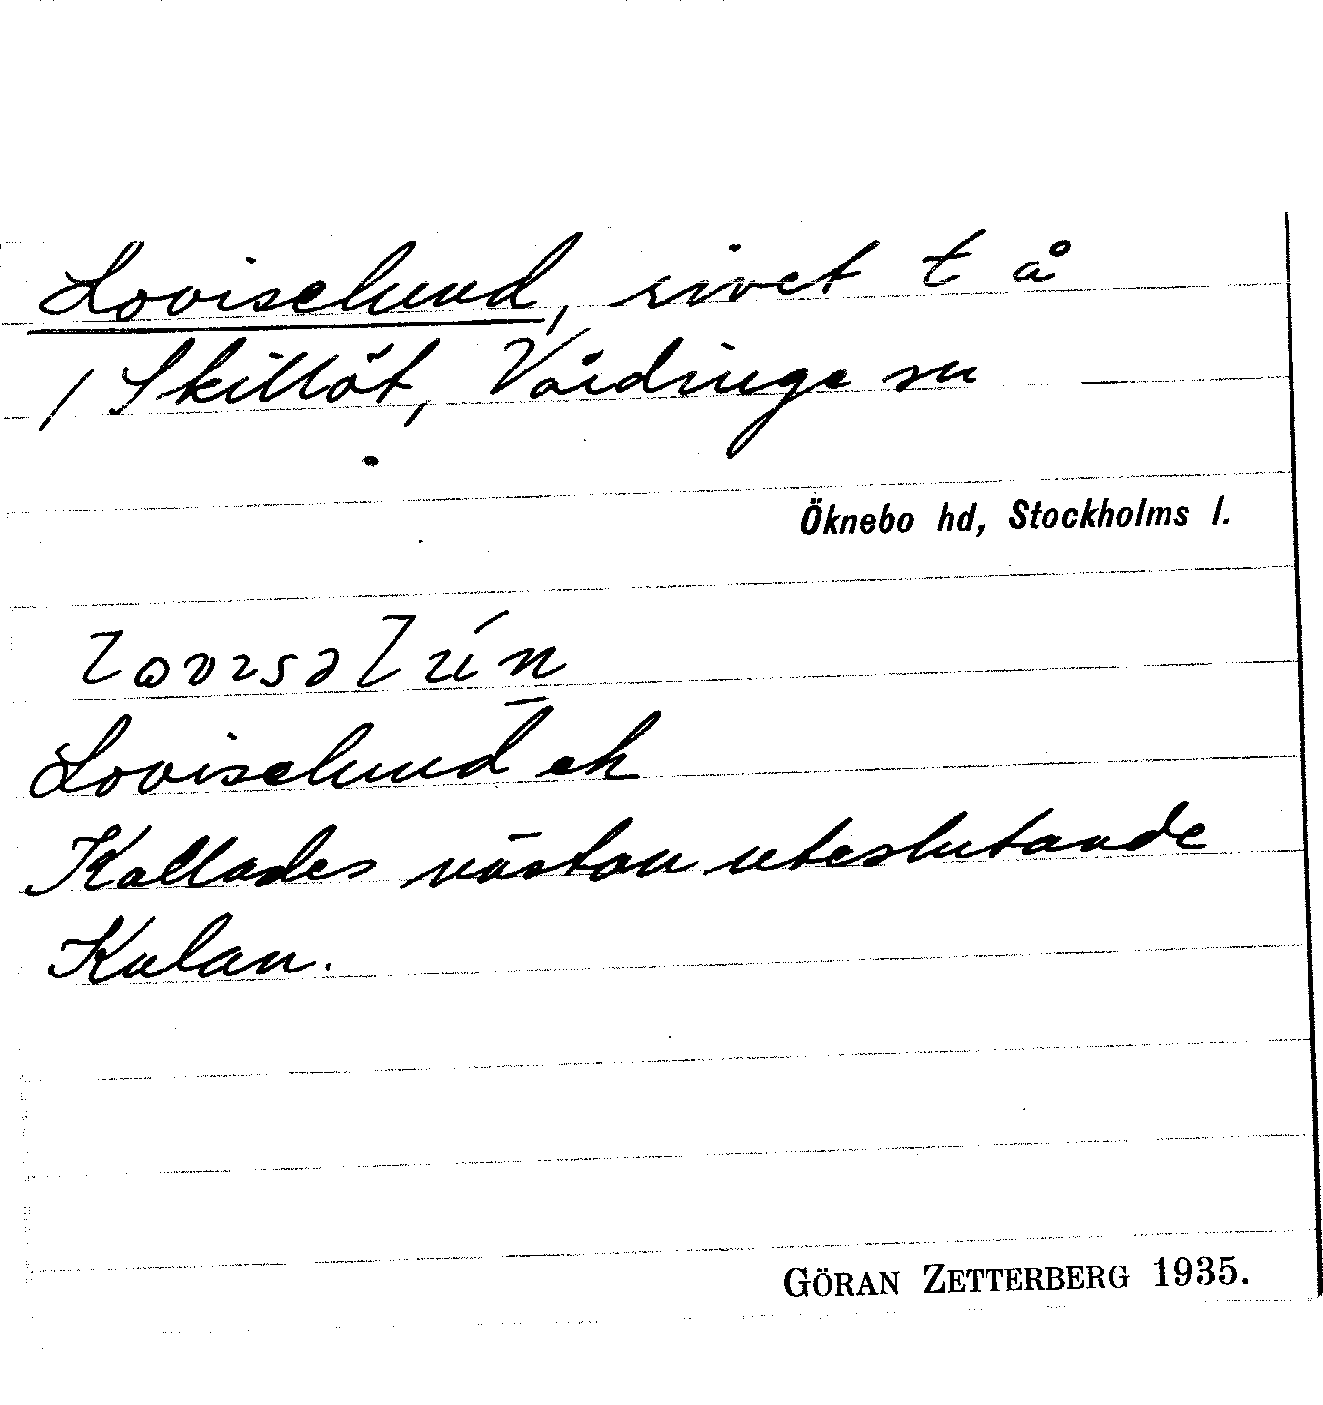 Loviselund, rivet t å
/ Skillöt, Vårdinge sn
Öknebo hd, Stockholms l.
Loviselund ek
Kallades nästan uteslutande
Kulan.
GÖRAN ZETTERBERG 1935.